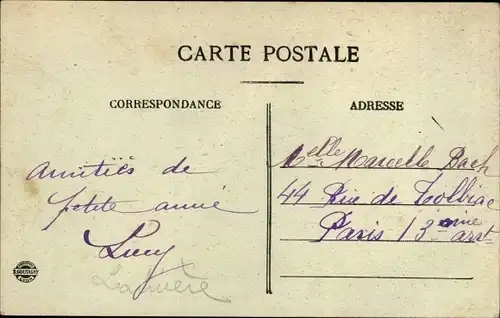 CARTE POSTALE
CORRESPONDANCE
ADRESSE
Amitiés de
petite amie
Lucy
Melle Marcelle Bach
44 Rue de Tolbiac
Paris 13 eme arst